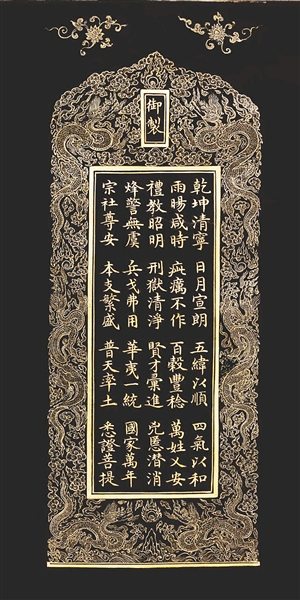 御製
乾坤清寧 日月宣朗 五緯以順 四氣以和
雨暘咸時 疢癘不作 百穀豐稔 萬姓乂安
禮教昭明 刑獄清淨 賢才彙進 兇慝潛消
烽警無虞 兵戈弗用 華夷一統 國家萬年
宗社尊安 本支繁盛 普天率土 悉證菩提